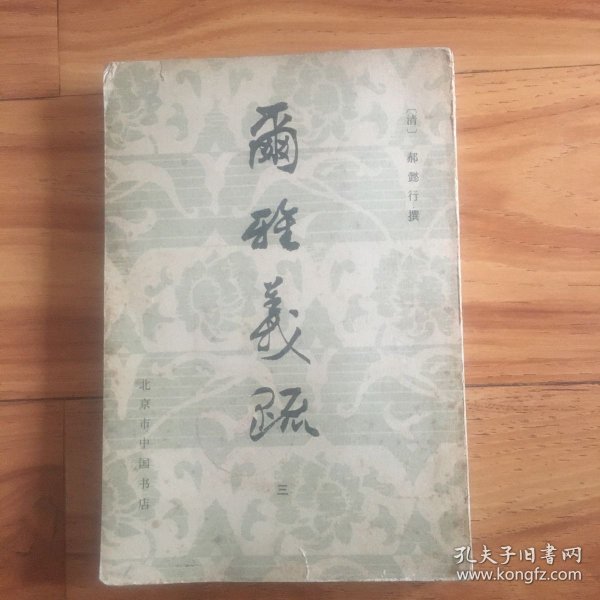 〔清〕郝懿行撰
爾雅義疏
三
北京市中国书店
孔夫子旧书网
www.kongfz.com